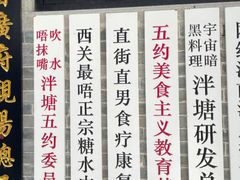 宇宙暗
黑料理
泮塘研发总
五约美食主义教育
直街直男食疗康复
西关最唔正宗糖水
吹水
唔抹嘴
泮塘五约委员
廣府